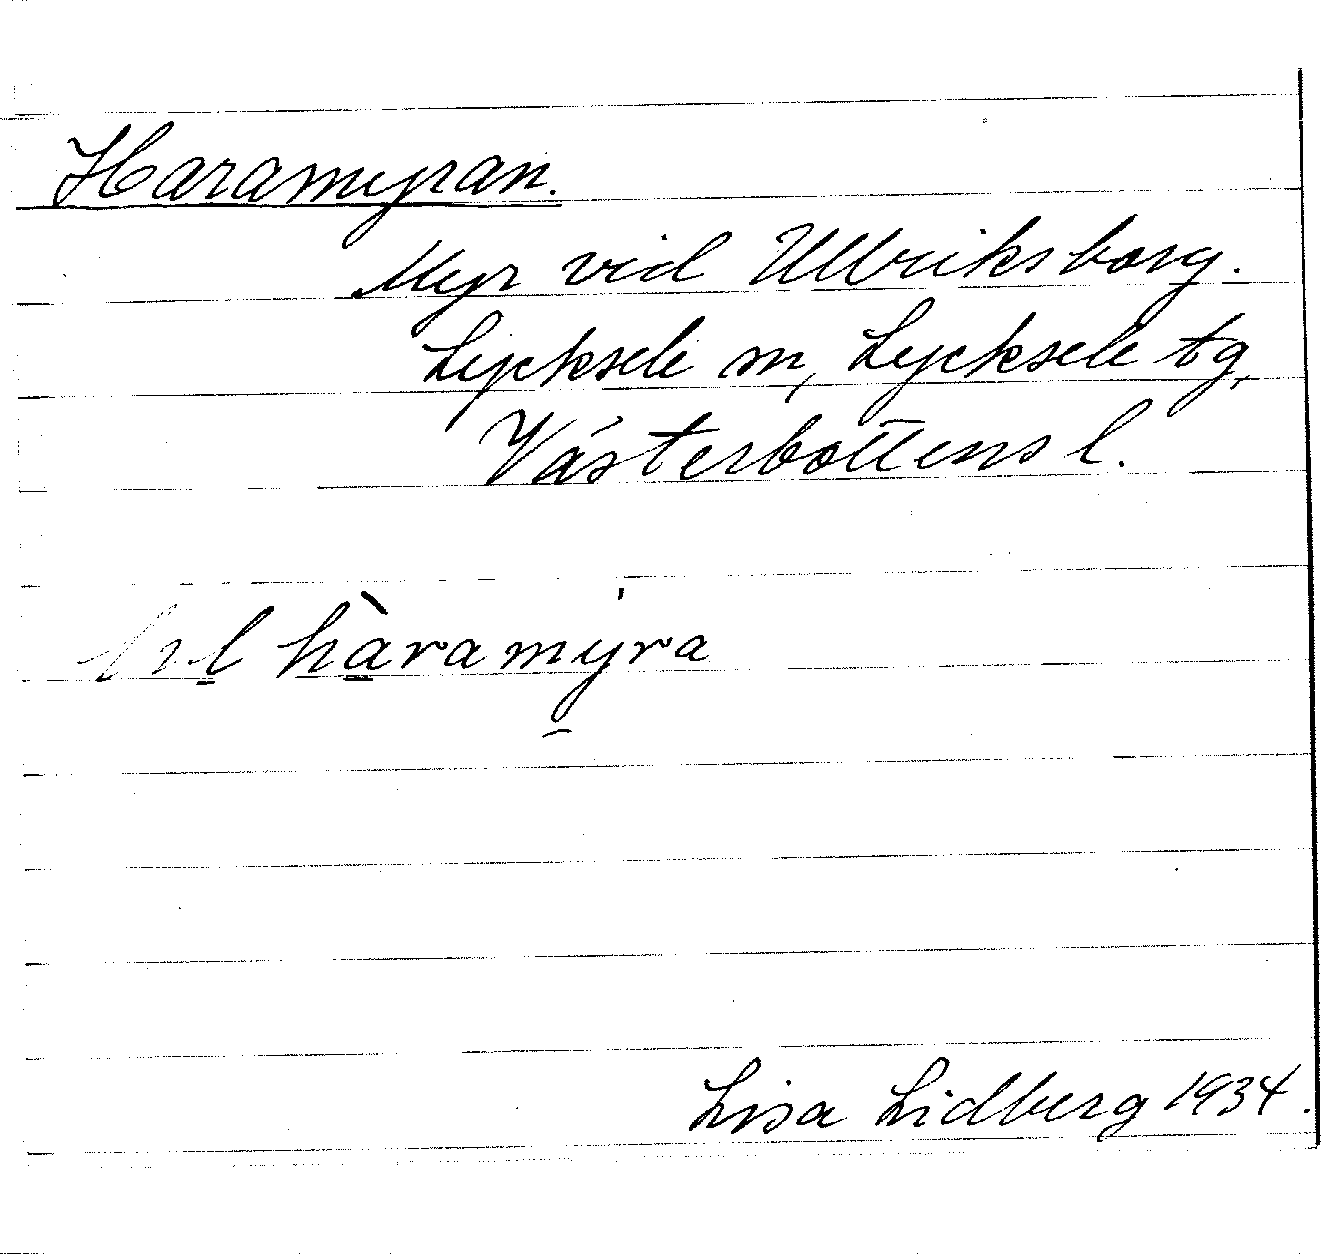 Haramyran.
Myr vid Ullriksborg.
Lycksele m, Lycksele tg,
Västerbottens l.
hàramyra
Lisa Lidberg 1934.